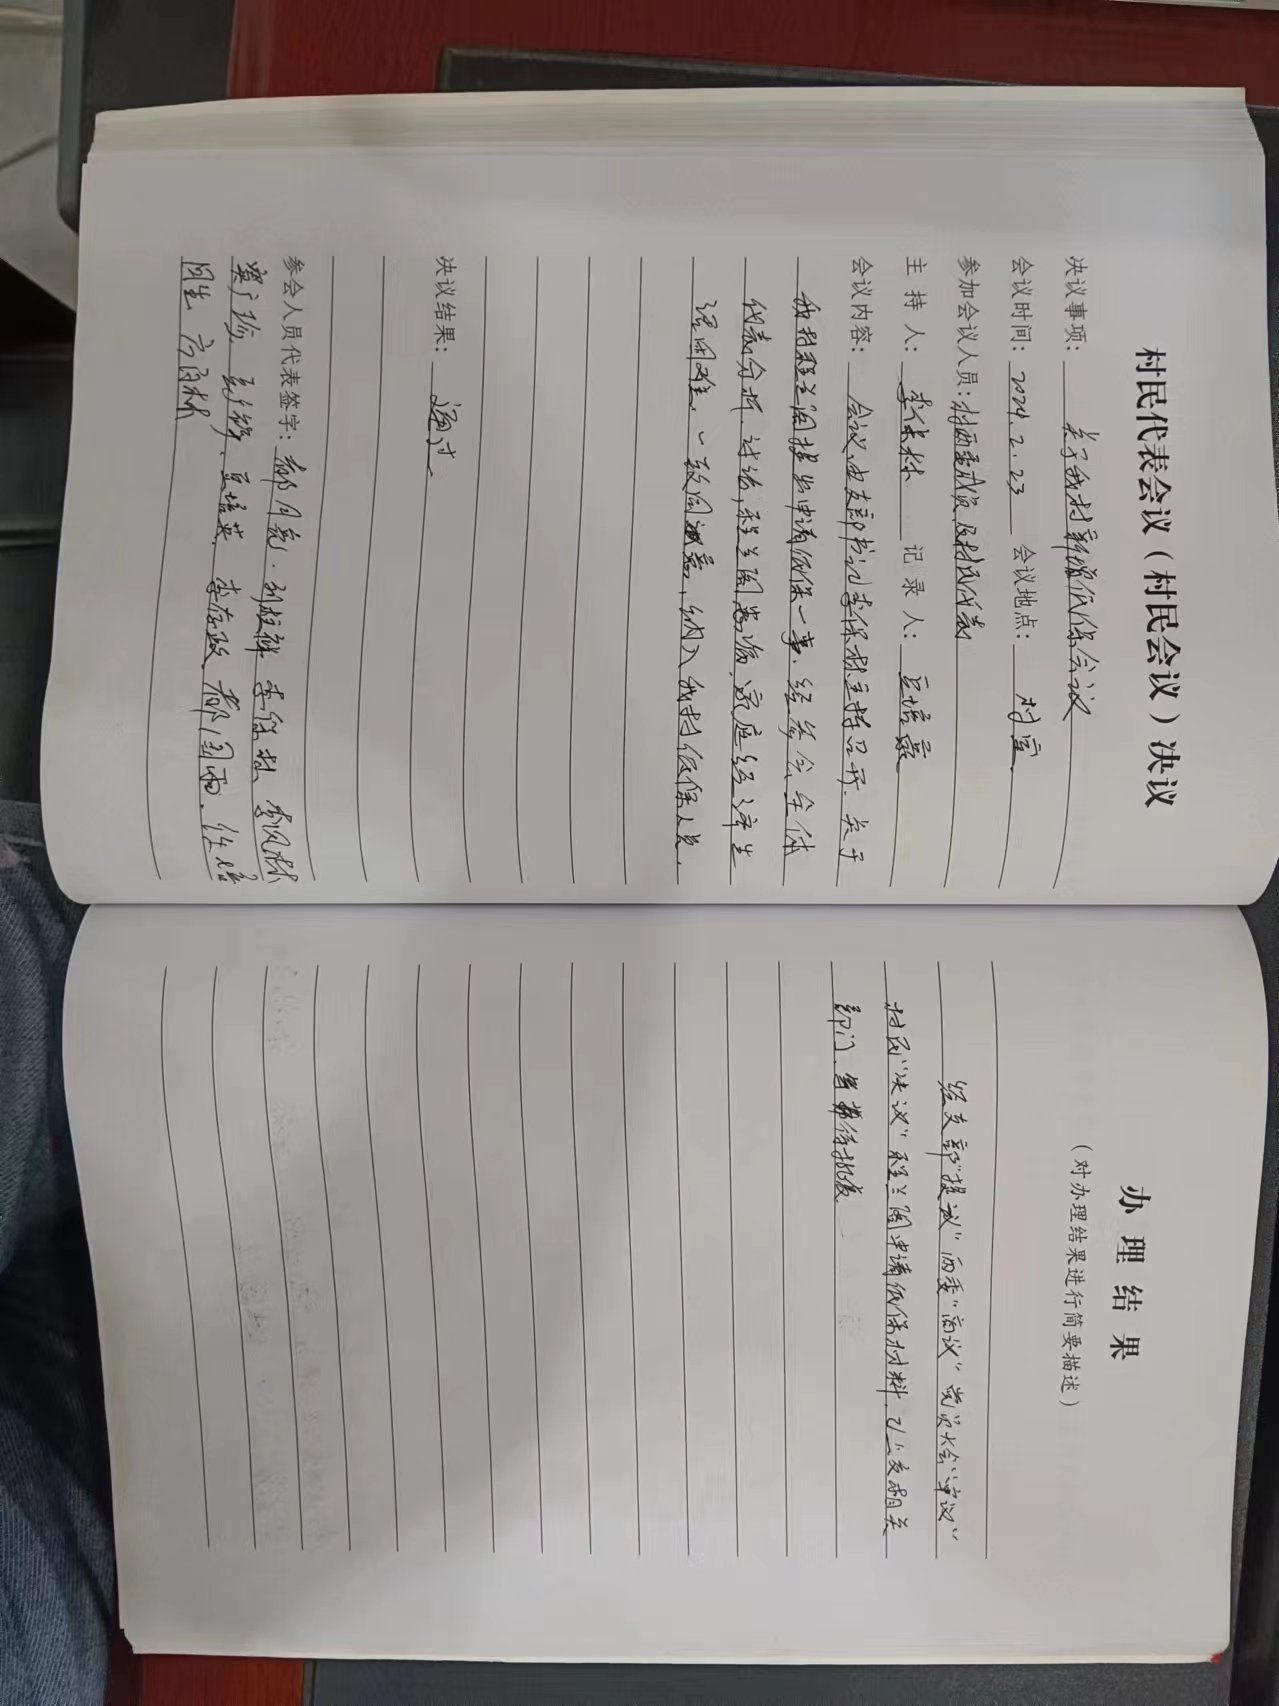 村民代表会议（村民会议）决议
决议事项：关于我村新增低保会议
会议时间：2024.2.23 会议地点：村室.
参加会议人员：村两委成员及村民代表
主持人：李保林 记录人：豆培景
会议内容：会议由支部书记李保林主持召开.关于
我村程兰阁提出申请低保一事.经参会全体
代表分析.讨论,程兰阁患病.家庭经济生
活困难.一致同意,纳入我村低保人员.
决议结果：通过.
参会人员代表签字： 李保林 李凤林
豆培英. 李存政
办理结果
（对办理结果进行简要描述）
经支部"提议"两委"商议"党员大会"审议"
村民"决议"程兰阁申请低保材料.已上交相关
部门.等待批复